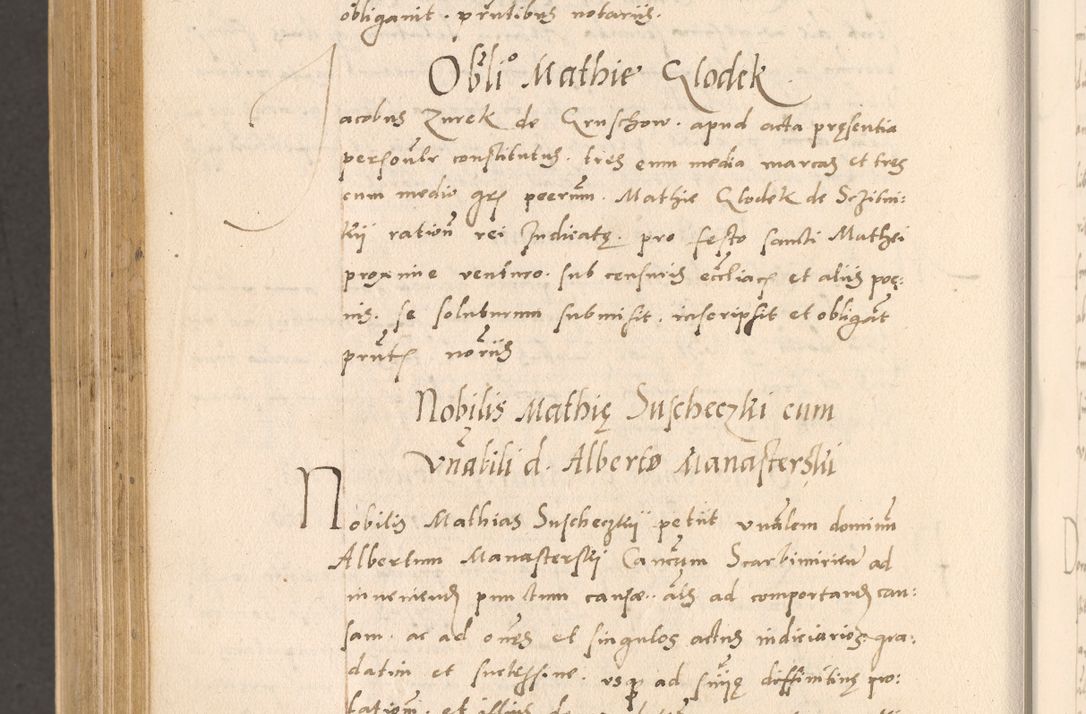 obliganit . pr̃ntibus notariis.
Obl̃i° Mathie Qlodek
Jacobus Zurek de Gruschow . apud acta pręsentia
personalr̃ constitutus . tres cum media marcas et tres
cum medio gr̃ peecun̄ . Mathie Qlodek de Sczitni:
kij ration̄ rei Judicatę . pro festo sancti Mathei
proxime venturo . sub censuris eccl̃iac̨ et aliis poę:
nis . se soluturum submisit . inscripsit et obligãt
pr̃ntc̨ nor̃iis
Nobilis Mathię Suscheczki cum
vn̄abili d. Alberto Manasterski
Nobilis Mathias Suscheczkij petiit vn̄alem dominũ
Albertum Manasterskij Canc̃um Scarbimirien̄ ad
inueniend̨ punctum causæ .. aĩs ad comportand̨ cau:
sam . ac ad om̄es et singulos actus indiciarios gra:
datim et successiue . vsq̨ ad sñiię diffinitiuę pro:
lation̄ . et illius